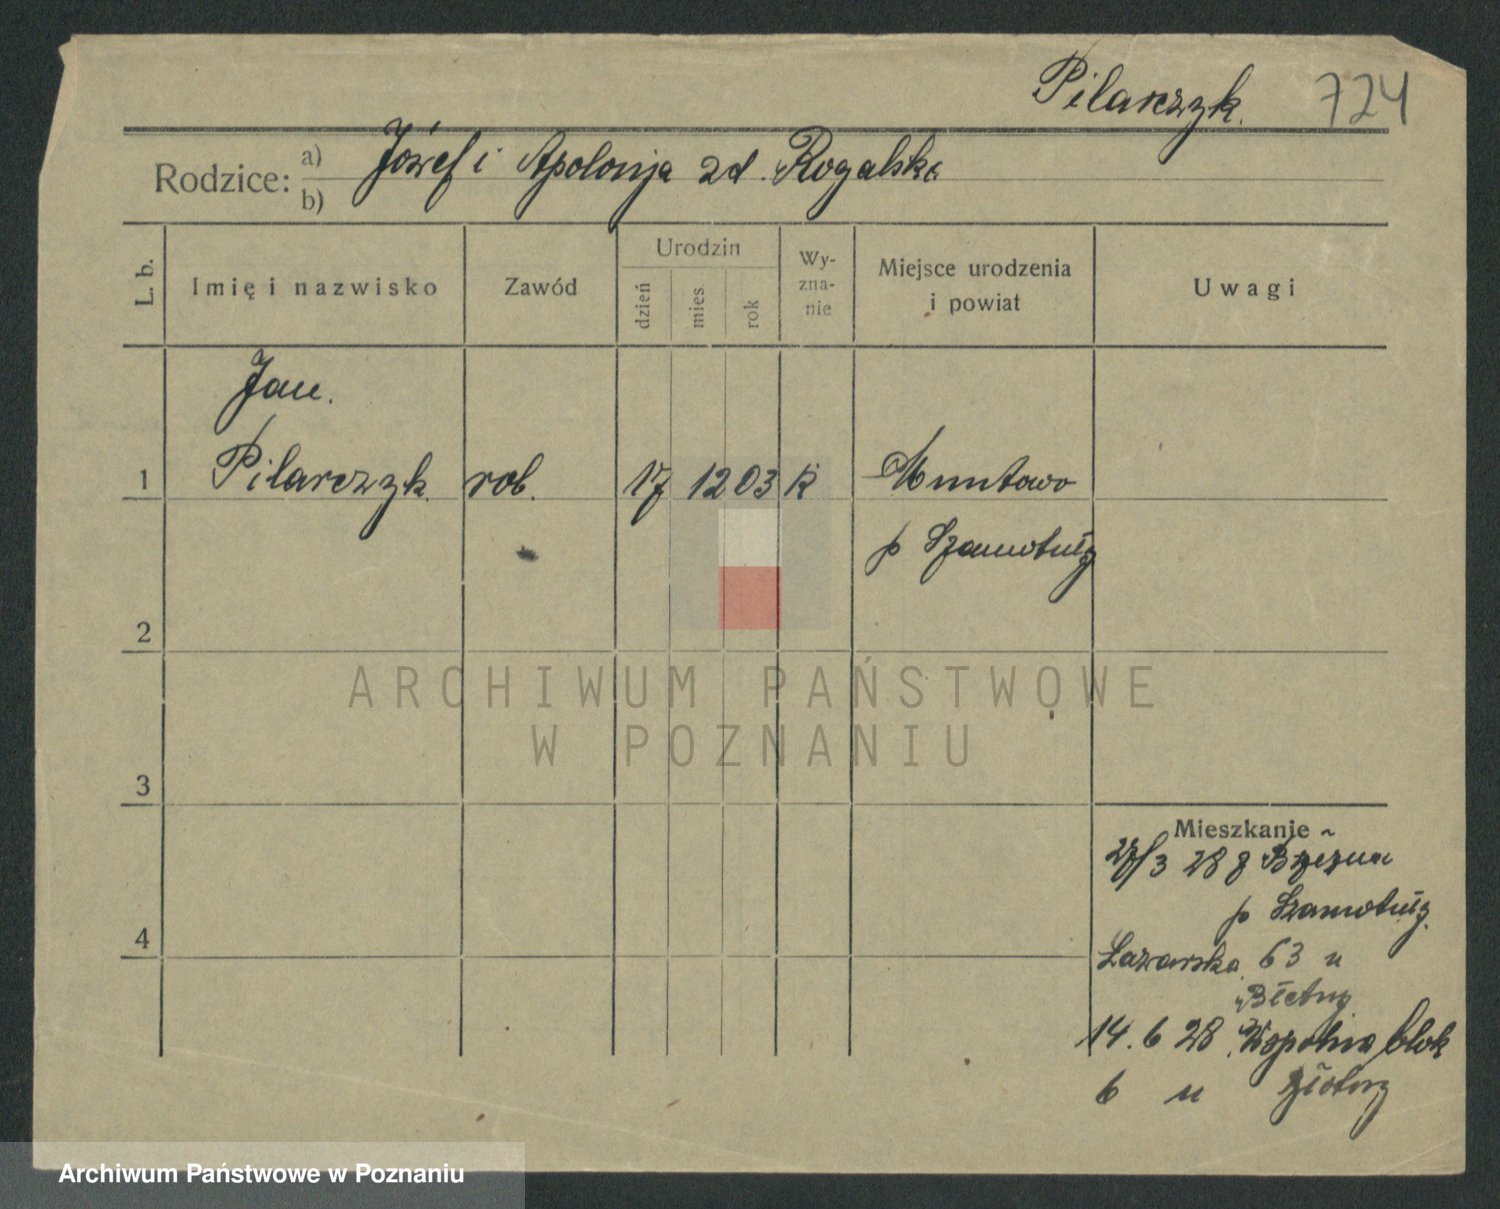 Pilarczyk. 724
Rodzice: a) Józef i Apolonja zd. Rogalska
b)
L. b. Imię i nazwisko Zawód Urodzin dzień mies. rok Wy-zna-nie Miejsce urodzenia i powiat Uwagi
Jan.
1 Pilarczyk rob. 17 12 03 K Mutowo
p Szamotuły
2
3
Mieszkanie
27/3 28 z Brzezna
p Szamotuły
4
Łazarska 63 u
14. 6 28 Wspólna blok
6 u
ARCHIWUM PAŃSTWOWE
W POZNANIU
Archiwum Państwowe w Poznaniu